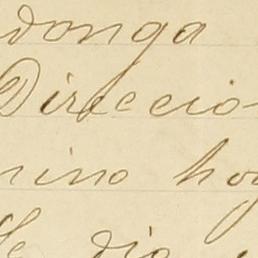 donga
Direccio
nino hoy
dia